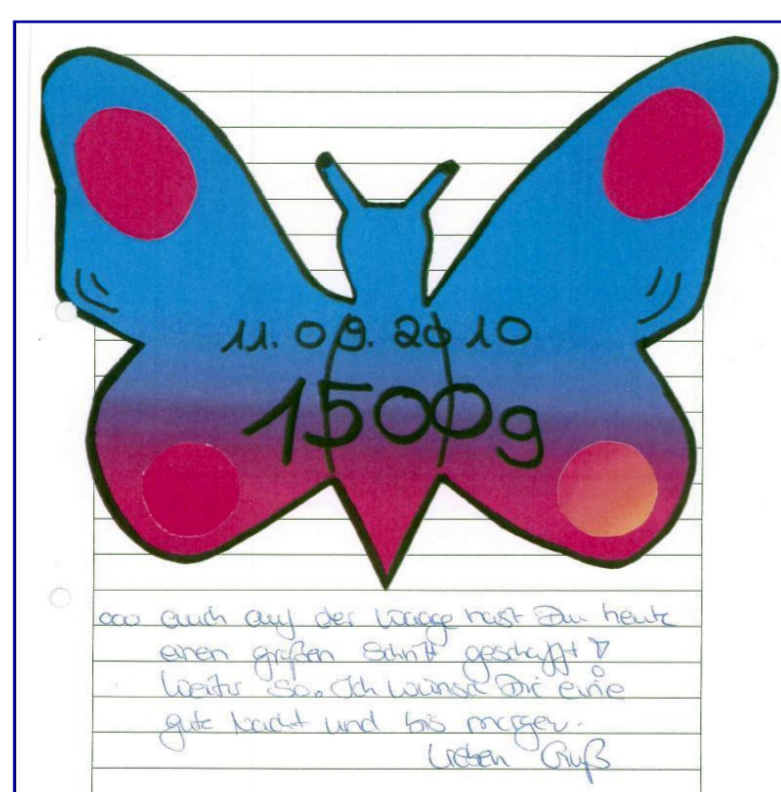 11.09.2010
1500g
ooo auch auf der Waage hast Du heute
einen großen Schritt geschafft!
Weiter so. Ich wünsch Dir eine
gute Nacht und bis morgen.
Lieben Gruß